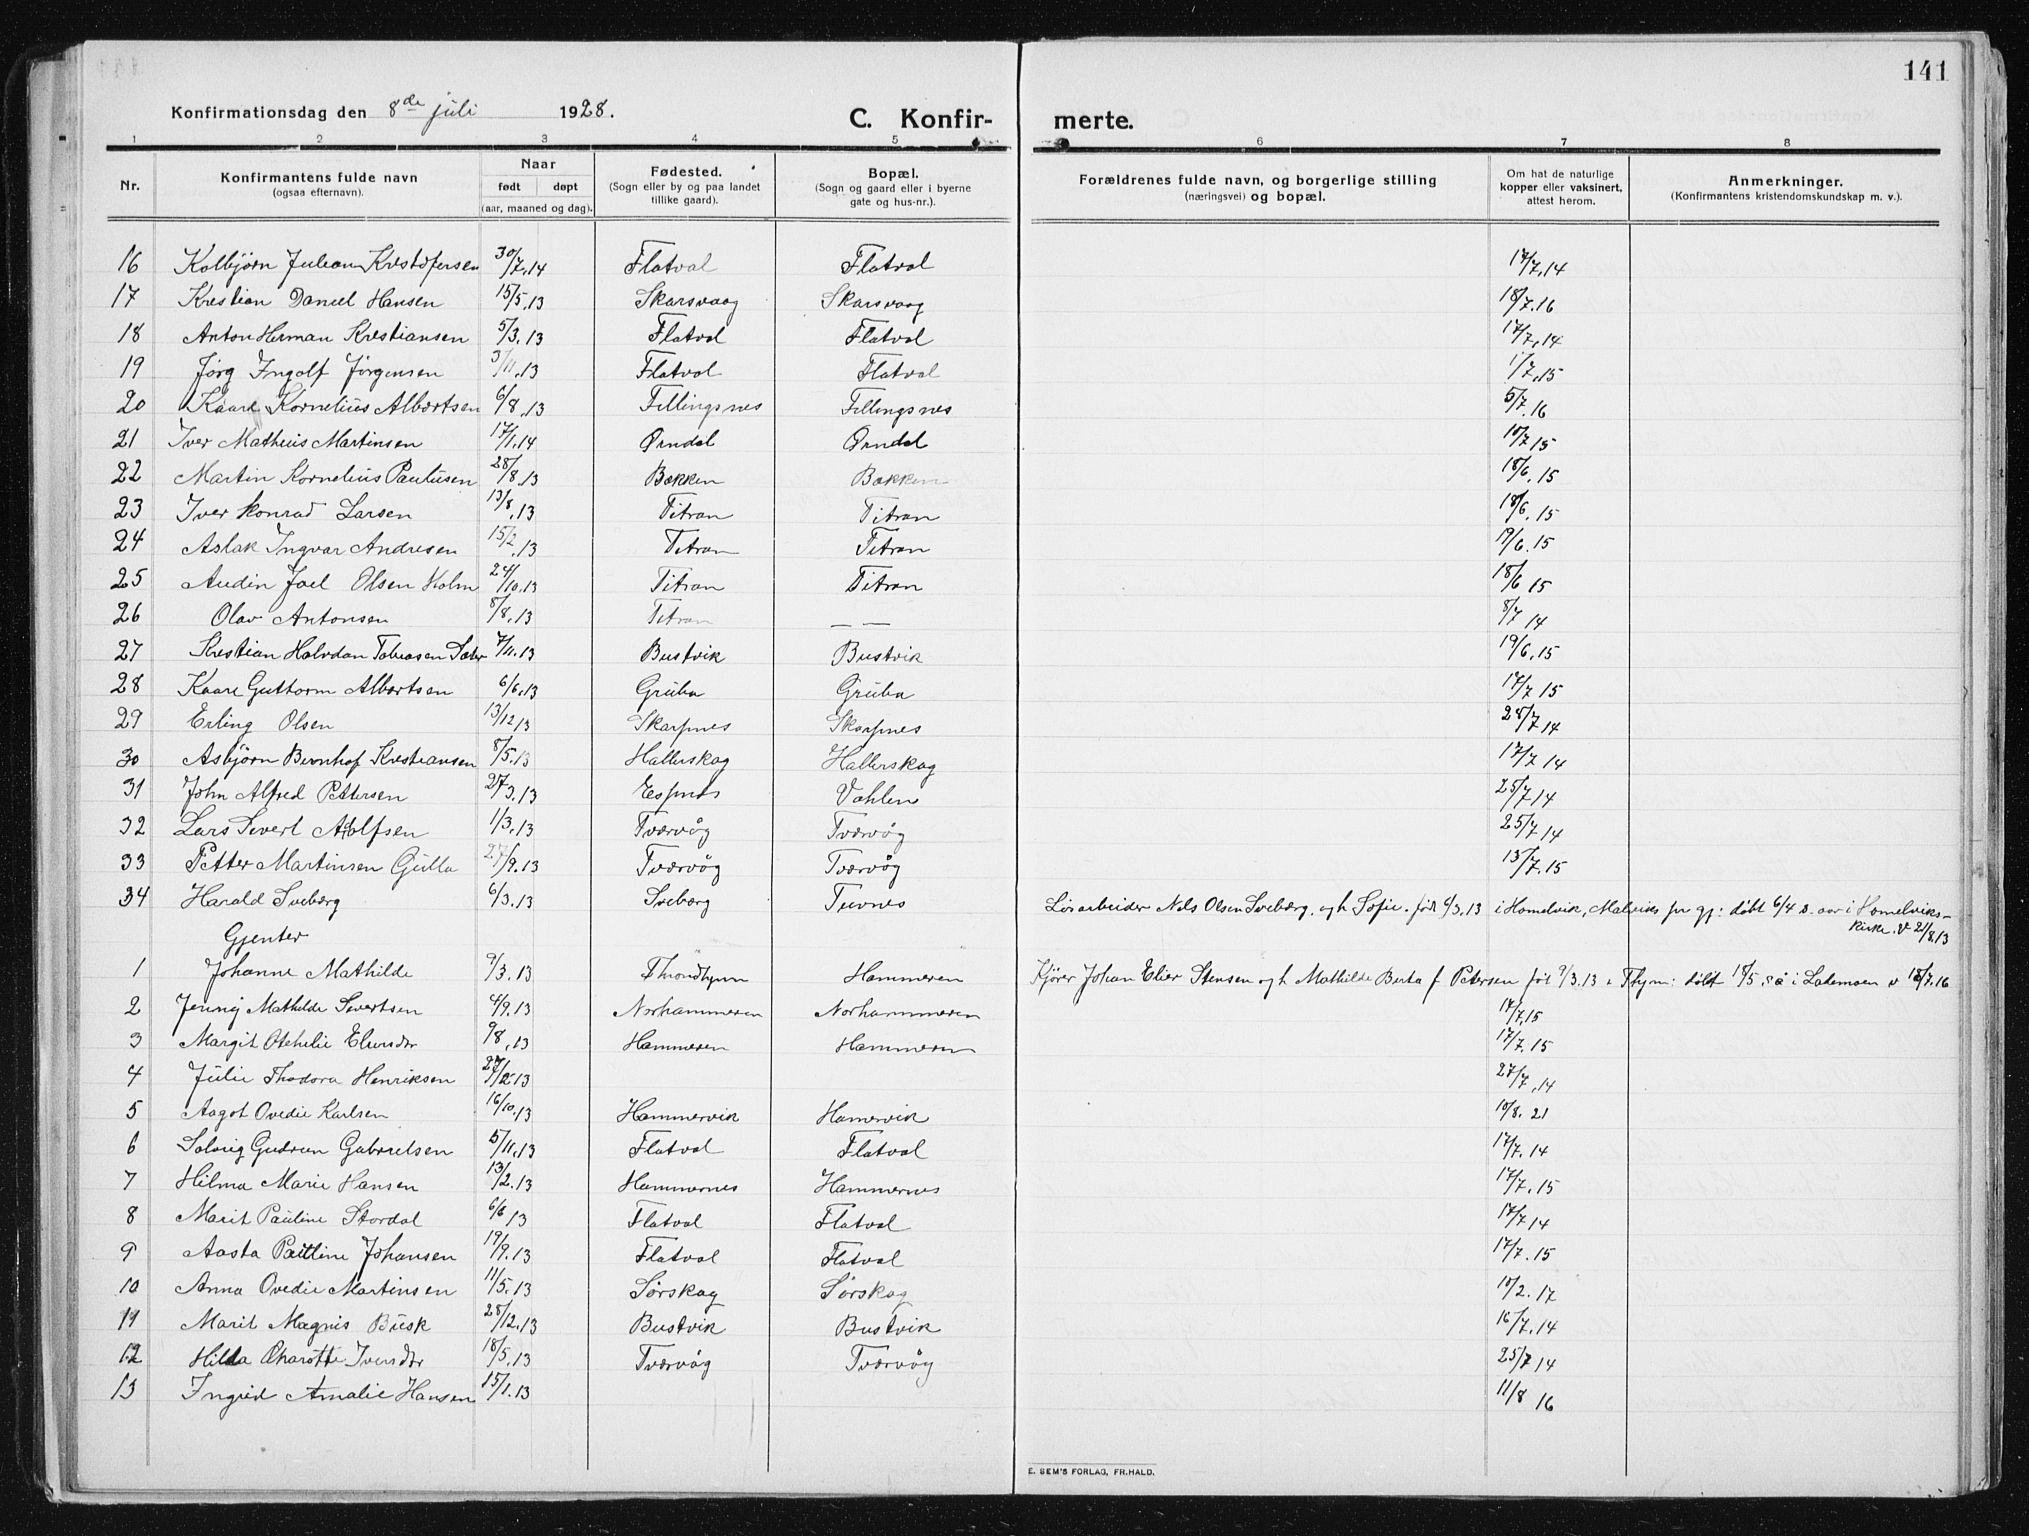 141
Konfirmationsdag den 8de juli 1928.
C. Konfir- merte.
1 2 3 4 5 6 7 8
Nr.
Konfirmantens fulde navn
(ogsaa efternavn).
Naar
født døpt
(aar, maaned og dag).
Fødested.
(Sogn eller by og paa landet
tillike gaard).
Bopæl.
(Sogn og gaard eller i byerne
gate og hus-nr.).
Forældrenes fulde navn, og borgerlige stilling
(næringsvei) og bopæl.
Om hat de naturlige
kopper eller vaksinert,
attest herom.
Anmerkninger.
(Konfirmantens kristendomskundskap m. v.).
16 Kolbjørn Julean Kristofersen 30/7.14 Flatval Flatval 17/7.14
17 Krestian Daniel Hansen 15/5.13 Skarsvaag Skarsvaag 18/7.16
18 Anton Herman Krestiansen 5/3.13 Flatval Flatval 17/7.14
19 Jørg Ingolf Jørgensen 3/11.13 Flatval Flatval 1/7.15
20 Kaare Kornelius Albertsen 6/8.13 Fillingsnes Fillingsnes 5/7.16
21 Iver Matheus Martinsen 17/1.14 Ørndal Ørndal 10/7 15
22 Martin Kornelius Paulusen 28/8.13 Bakken Bakken 18/6.15
23 Iver Konrad Larsen 13/8.13 Titran Titran 18/6.15
24 Aslak Ingvar Andresen 15/2.13 Titran Titran 19/6.15
25 Audin Joel Olsen Holm 24/10.13 Titran Titran 18/6 15
26 Olav Antonsen 8/8.13 Titran — — 8/7 14
27 Krestian Halvdan Tobiasen Sæter 7/11.13 Bustvik Bustvik 19/6.15
28 Kaare Guttorm Albertsen 6/6.13 Gruba Gruba 17/7 15
29 Erling Olsen 13/12 13 Skarpnes Skarpnes 25/7 14
30 Asbjørn Bernhof Krestiansen 8/5.13 Hallerskag Hallerskag 17/7 14
31 John Alfred Pettersen 27/3.13 Espnes Vahlen 25/7 14
32 Lars Sivert Adolfsen 1/3.13 Tværvåg Tværvåg 25/7 14
33 Petter Martinsen Gulla 27/9.13 Tværvåg Tværvåg 13/7.15
34 Harald Sveberg 6/3.13 Sveberg Tuvnes Løsarbeider Nils Olsen Sveberg. og h Sofie. født 6/3.13 i Homelvik, Malviks pr gj: døbt 6/4 s. aar i Homelviks-
kirke. V 21/8.13
Gjenter
1 Johanne Mathilde 9/3.13 Throndhjem Hammeren Kjører Johan Elier Stensen og h Mathilde Berta f Petersen født 9/3.13 i Thjm: døbt 18/5. s å i Lademoen v 18/7.16
2 Jenny Mathilde Sivertsen 4/9.13 Norhammeren Norhammeren 17/7.15
3 Margit Othelie Eliersdtr 9/8.13 Hammeren Hammeren 17/7.15
4 Julie Thodora Henriksen 27/12 13 27/7.14
5 Aagot Ovedie Karlsen 16/10.13 Hammervik Hamervik 10/8.21
6 Solveig Gudrun Gabrielsen 5/11.13 Flatval Flatval 17/7.14
7 Hilma Marie Hansen 13/2.13 Hammernes Hammernes 17/7.15
8 Marit Pauline Stordal 6/6 13 Flatval Flatval 17/7 14
9 Aasta Pauline Johansen 19/9.13 Flatval Flatval 17/7.15
10 Anna Ovedie Martinsen 11/5.13 Sørskag Sørskag 10/2.17
11 Marit Magnis Busk 28/12.13 Bustvik Bustvik 16/7.14
12 Hilda Charotte Iversdtr 18/5.13 Tværvåg Tværvåg 25/7 14
13 Ingrid Amalie Hansen 15/1.13 11/8 16
E. SEM'S FORLAG, FR.HALD.